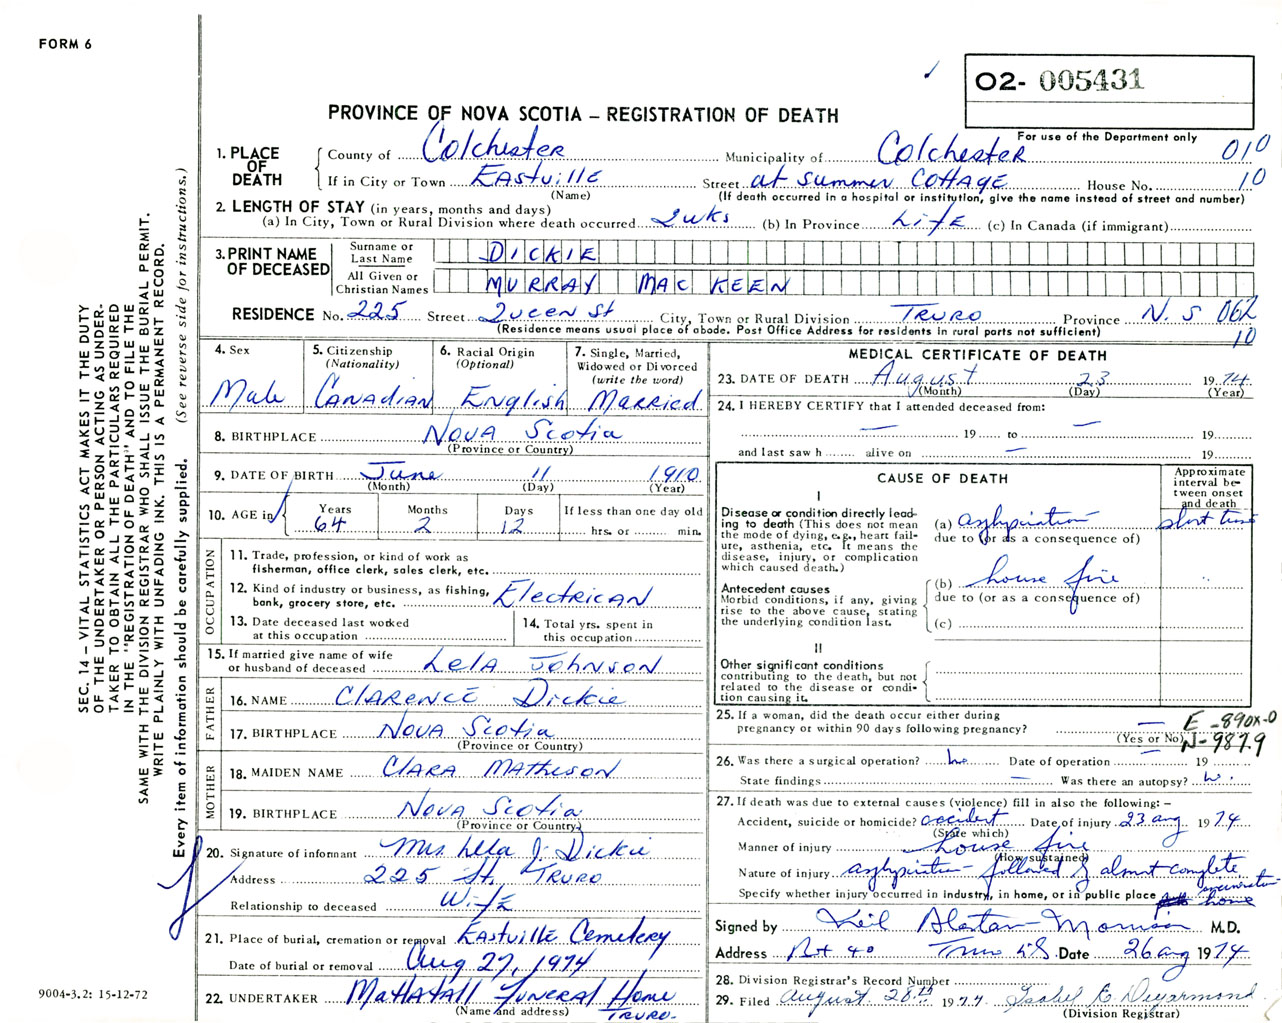 FORM 6
02- 005431
PROVINCE OF NOVA SCOTIA – REGISTRATION OF DEATH
For use of the Department only
1. PLACE OF DEATH
County of Colchester Municipality of Colchester 010
If in City or Town Eastville Street at summer cottage House No. 10
(Name) (If death occurred in a hospital or institution, give the name instead of street and number)
2. LENGTH OF STAY (in years, months and days)
(a) In City, Town or Rural Division where death occurred 2 wks (b) In Province Life (c) In Canada (if immigrant)
3. PRINT NAME OF DECEASED
Surname or Last Name DICKIE
All Given or Christian Names MURRAY MAC KEEN
RESIDENCE No. 225 Street Queen St City, Town or Rural Division TRURO Province N.S 062
(Residence means usual place of abode. Post Office Address for residents in rural parts not sufficient) 10
4. Sex Male
5. Citizenship (Nationality) Canadian
6. Racial Origin (Optional) English
7. Single, Married, Widowed or Divorced (write the word) Married
8. BIRTHPLACE Nova Scotia
(Province or Country)
9. DATE OF BIRTH June 11 1910
(Month) (Day) (Year)
10. AGE in Years 64 Months 2 Days 12 If less than one day old hrs. or min.
OCCUPATION
11. Trade, profession, or kind of work as fisherman, office clerk, sales clerk, etc.
12. Kind of industry or business, as fishing, bank, grocery store, etc. Electrican
13. Date deceased last worked at this occupation
14. Total yrs. spent in this occupation
15. If married give name of wife or husband of deceased Lela Johnson
FATHER
16. NAME Clarence Dickie
17. BIRTHPLACE Nova Scotia
(Province or Country)
MOTHER
18. MAIDEN NAME Clara Matheson
19. BIRTHPLACE Nova Scotia
(Province or Country)
20. Signature of informant Mrs. Lela J. Dickie
Address 225 St. Truro
Relationship to deceased Wife
21. Place of burial, cremation or removal Eastville Cemetery
Date of burial or removal Aug 27, 1974
22. UNDERTAKER Mattatall Funeral Home
(Name and address) Truro.
MEDICAL CERTIFICATE OF DEATH
23. DATE OF DEATH August 23 1974
(Month) (Day) (Year)
24. I HEREBY CERTIFY that I attended deceased from:
— 19 — to — 19
and last saw h alive on — 19
CAUSE OF DEATH
Approximate interval between onset and death
I
Disease or condition directly leading to death (This does not mean the mode of dying, e.g., heart failure, asthenia, etc. It means the disease, injury, or complication which caused death.)
(a) asphyxiation short time
due to (or as a consequence of)
Antecedent causes
Morbid conditions, if any, giving rise to the above cause, stating the underlying condition last.
(b) house fire "
due to (or as a consequence of)
(c)
II
Other significant conditions contributing to the death, but not related to the disease or condition causing it.
25. If a woman, did the death occur either during pregnancy or within 90 days following pregnancy? —
(Yes or No)
E-890X-0
N-987.9
26. Was there a surgical operation? no Date of operation — 19
State findings — Was there an autopsy? no.
27. If death was due to external causes (violence) fill in also the following: –
Accident, suicide or homicide? accident Date of injury 23 aug 1974
(State which)
Manner of injury house fire
(How sustained)
Nature of injury asphyxiation followed by almost complete incineration
Specify whether injury occurred in industry, in home, or in public place home
Signed by Morrison M.D.
Address Box 40 Truro NS Date 26 aug 1974
28. Division Registrar's Record Number
29. Filed August 28th 1974 Isabel E. Deyarmond
(Division Registrar)
SEC. 14 – VITAL STATISTICS ACT MAKES IT THE DUTY
OF THE UNDERTAKER OR PERSON ACTING AS UNDER-
TAKER TO OBTAIN ALL THE PARTICULARS REQUIRED
IN THE "REGISTRATION OF DEATH" AND TO FILE THE
SAME WITH THE DIVISION REGISTRAR WHO SHALL ISSUE THE BURIAL PERMIT.
WRITE PLAINLY WITH UNFADING INK. THIS IS A PERMANENT RECORD.
Every item of information should be carefully supplied. (See reverse side for instructions.)
9004-3.2: 15-12-72